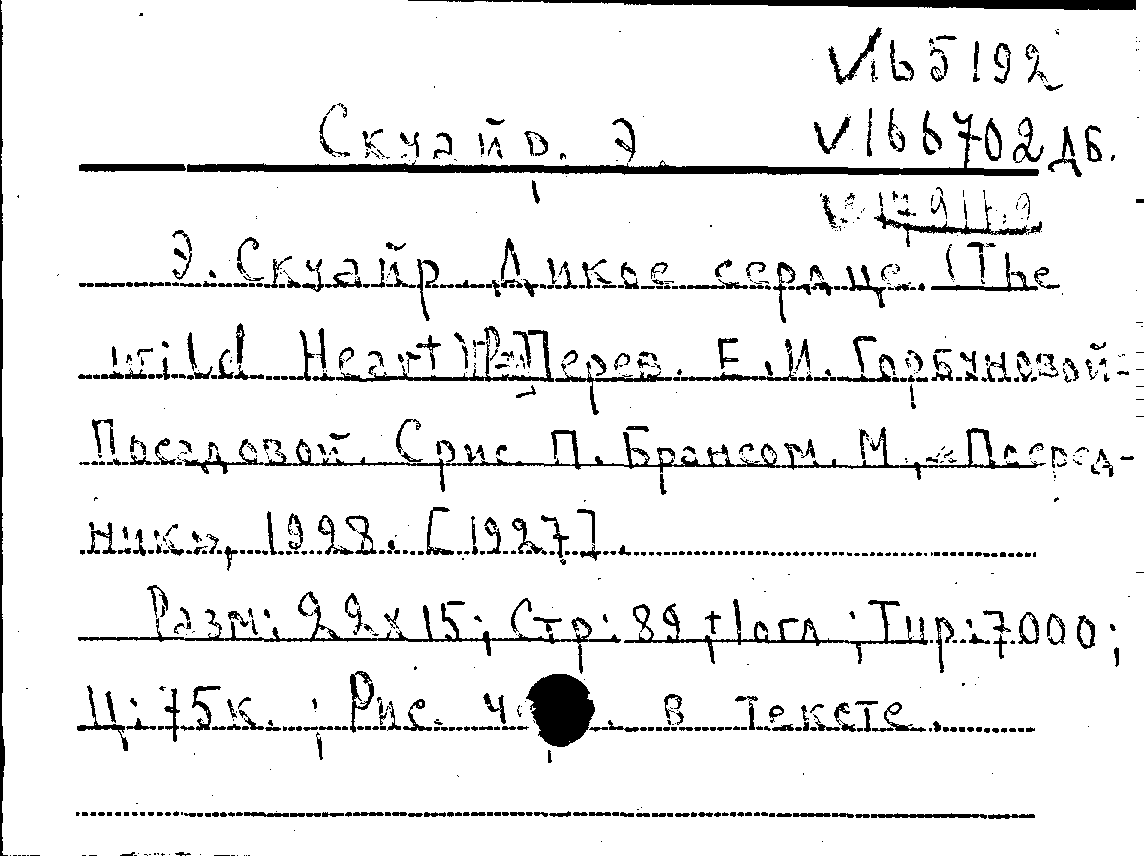 V165192
Скуайр. Э.
V166702 ДБ.
Э. Скуайр. Дикое сердце. (The
wild Heart) Перев. Е.И. Горбуновой-
Посадовой. С рис. П. Брансом. М., «Посред-
ник», 1928. [1927].
Разм: 22х15; Стр: 89 + 1 огл; Тир: 7000;
Ц: 75 к.; Рис. в тексте.